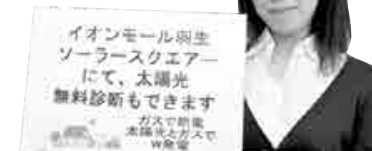 イオンモール羽生
ソーラースクエアー
にて、太陽光
無料診断もできます
ガスで節電
太陽光とガスで
W発電